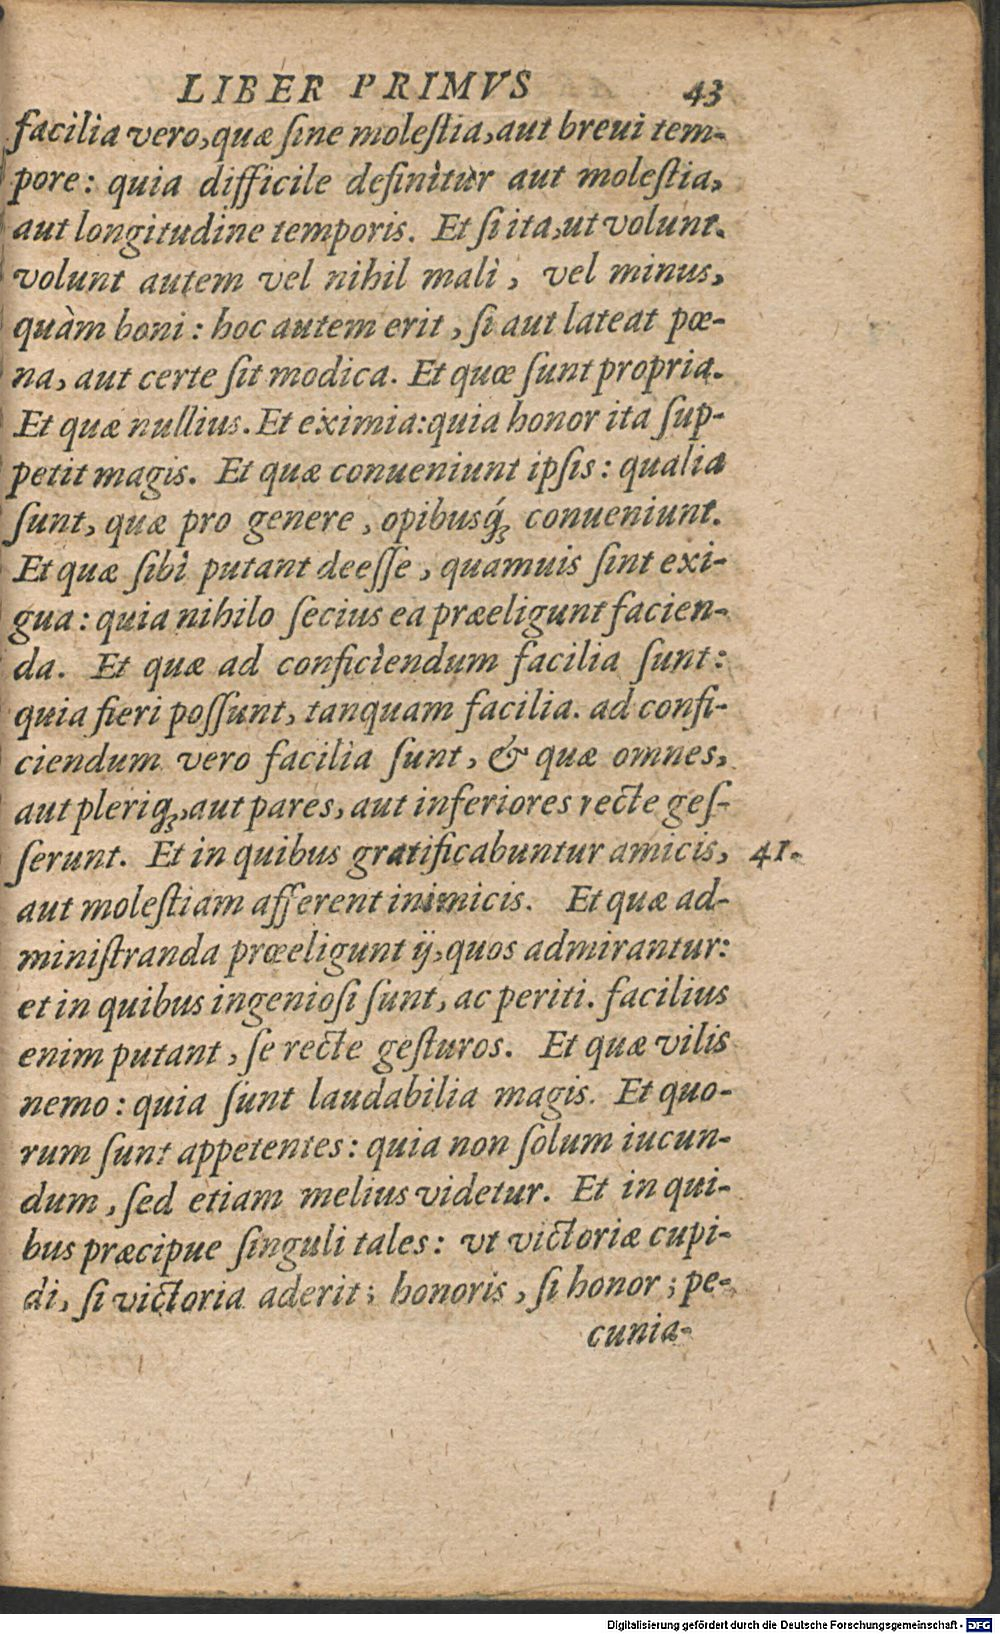 LIBER PRIMVS 43
facilia vero, quæ ſine moleſtia, aut breui tem-
pore: quia difficile definitur aut moleſtia,
aut longitudine temporis. Et ſi ita, ut volunt.
volunt autem vel nihil mali, vel minus,
quàm boni: hoc autem erit, ſi aut lateat pœ-
na, aut certe ſit modica. Et quæ ſunt propria.
Et quæ nullius. Et eximia: quia honor ita ſup-
petit magis. Et quæ conueniunt ipſis: qualia
ſunt, quæ pro genere, opibusq́; conueniunt.
Et quæ ſibi putant deeſſe, quamuis ſint exi-
gua: quia nihilo ſecius ea præeligunt facien-
da. Et quæ ad conficiendum facilia ſunt:
quia fieri poſſunt, tanquam facilia. ad confi-
ciendum vero facilia ſunt, & quæ omnes,
aut pleriq;, aut pares, aut inferiores recte geſ-
ſerunt. Et in quibus gratificabuntur amicis, 41.
aut moleſtiam afferent inimicis. Et quæ ad-
miniſtranda præeligunt ij, quos admirantur:
et in quibus ingenioſi ſunt, ac periti. facilius
enim putant, ſe recte geſturos. Et quæ vilis
nemo: quia ſunt laudabilia magis. Et quo-
rum ſunt appetentes: quia non ſolum iucun-
dum, ſed etiam melius videtur. Et in qui-
bus præcipue ſinguli tales: vt victoriæ cupi-
di, ſi victoria aderit; honoris, ſi honor; pe-
cunia-
Digitalisierung gefördert durch die Deutsche Forschungsgemeinschaft - DFG